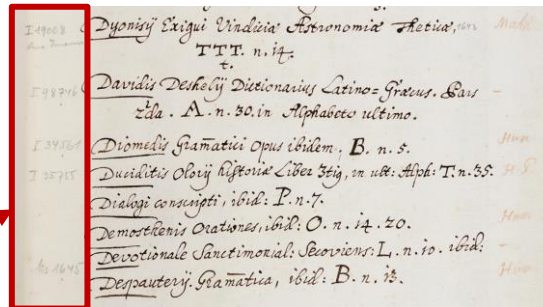 I 19008 Dyonisij Exigui Vindiciæ Astronomiæ Theticæ, Math.
TTT. n. 14.
t.
I 98746 Davidis Deskelij Dictionarius Latino=Græcus. Pars
2da. A. n. 30. in Alphabeto ultimo.
I 34561 Diomedis Gram̄atici Opus ibidem. B. n. 5. Hum
I 35755 Duciditis Olorij historiæ Liber 3tiq, in ult: Alph: T. n. 35. H.P.
Dialogi conscripti, ibid: P. n. 7.
Demosthenis Orationes, ibid: O. n. 14. 20. Hum
Devotionale Sanctimonial: Secoviens: L. n. 10. ibid:
1645 Despauterij. Gram̄atica, ibid: B. n. 13. Hum